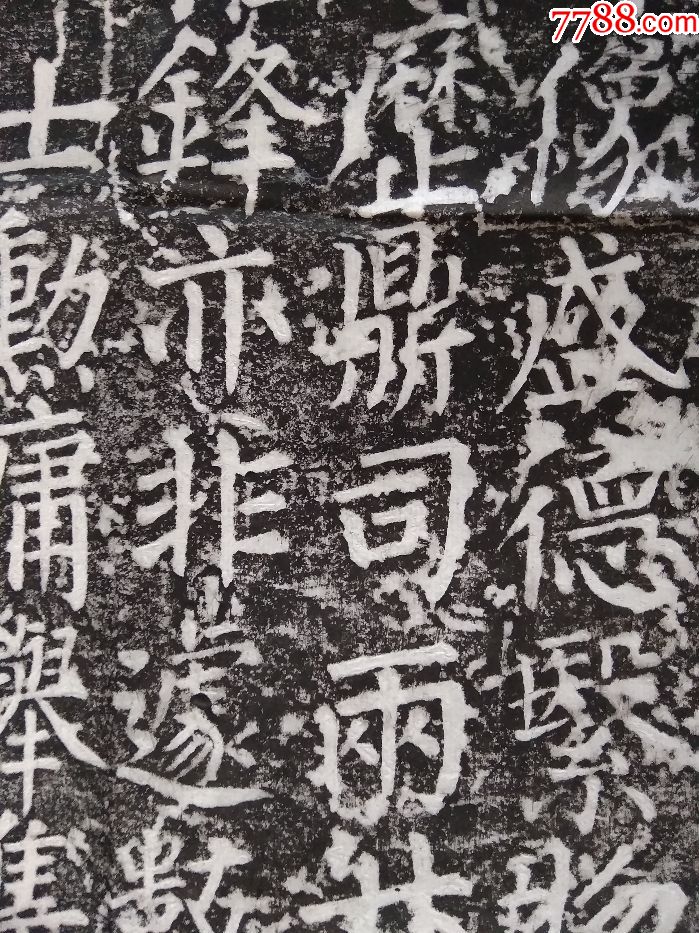 7788.com
像盛德繄
歷鼎司兩
鋒亦非遽數
士勳庸舉